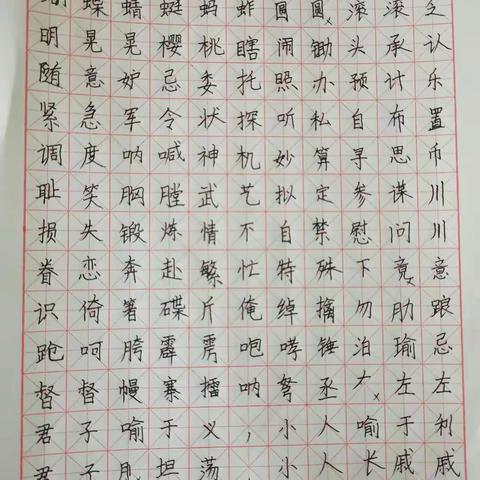 蝶蜻蜓蚂蚱圆圆滚滚乏
明晃晃樱桃瞎闹锄头承认
随意妒忌委托照办预计乐
紧急军令状探听私自布置
调度呐喊神机妙算寻思币
耻笑胸膛武艺拟定参谋川
损失锻炼情不自禁慰问川
眷恋奔赴繁忙特殊下竟意
识倚箸碟斤俺绰擒勿肋踉
跄呵胯霹雳咆哮锤泊瑜忌
督督幔寨擂呐弩丞大左左
君子喻于义,小人喻于利
君子坦荡小人长戚戚